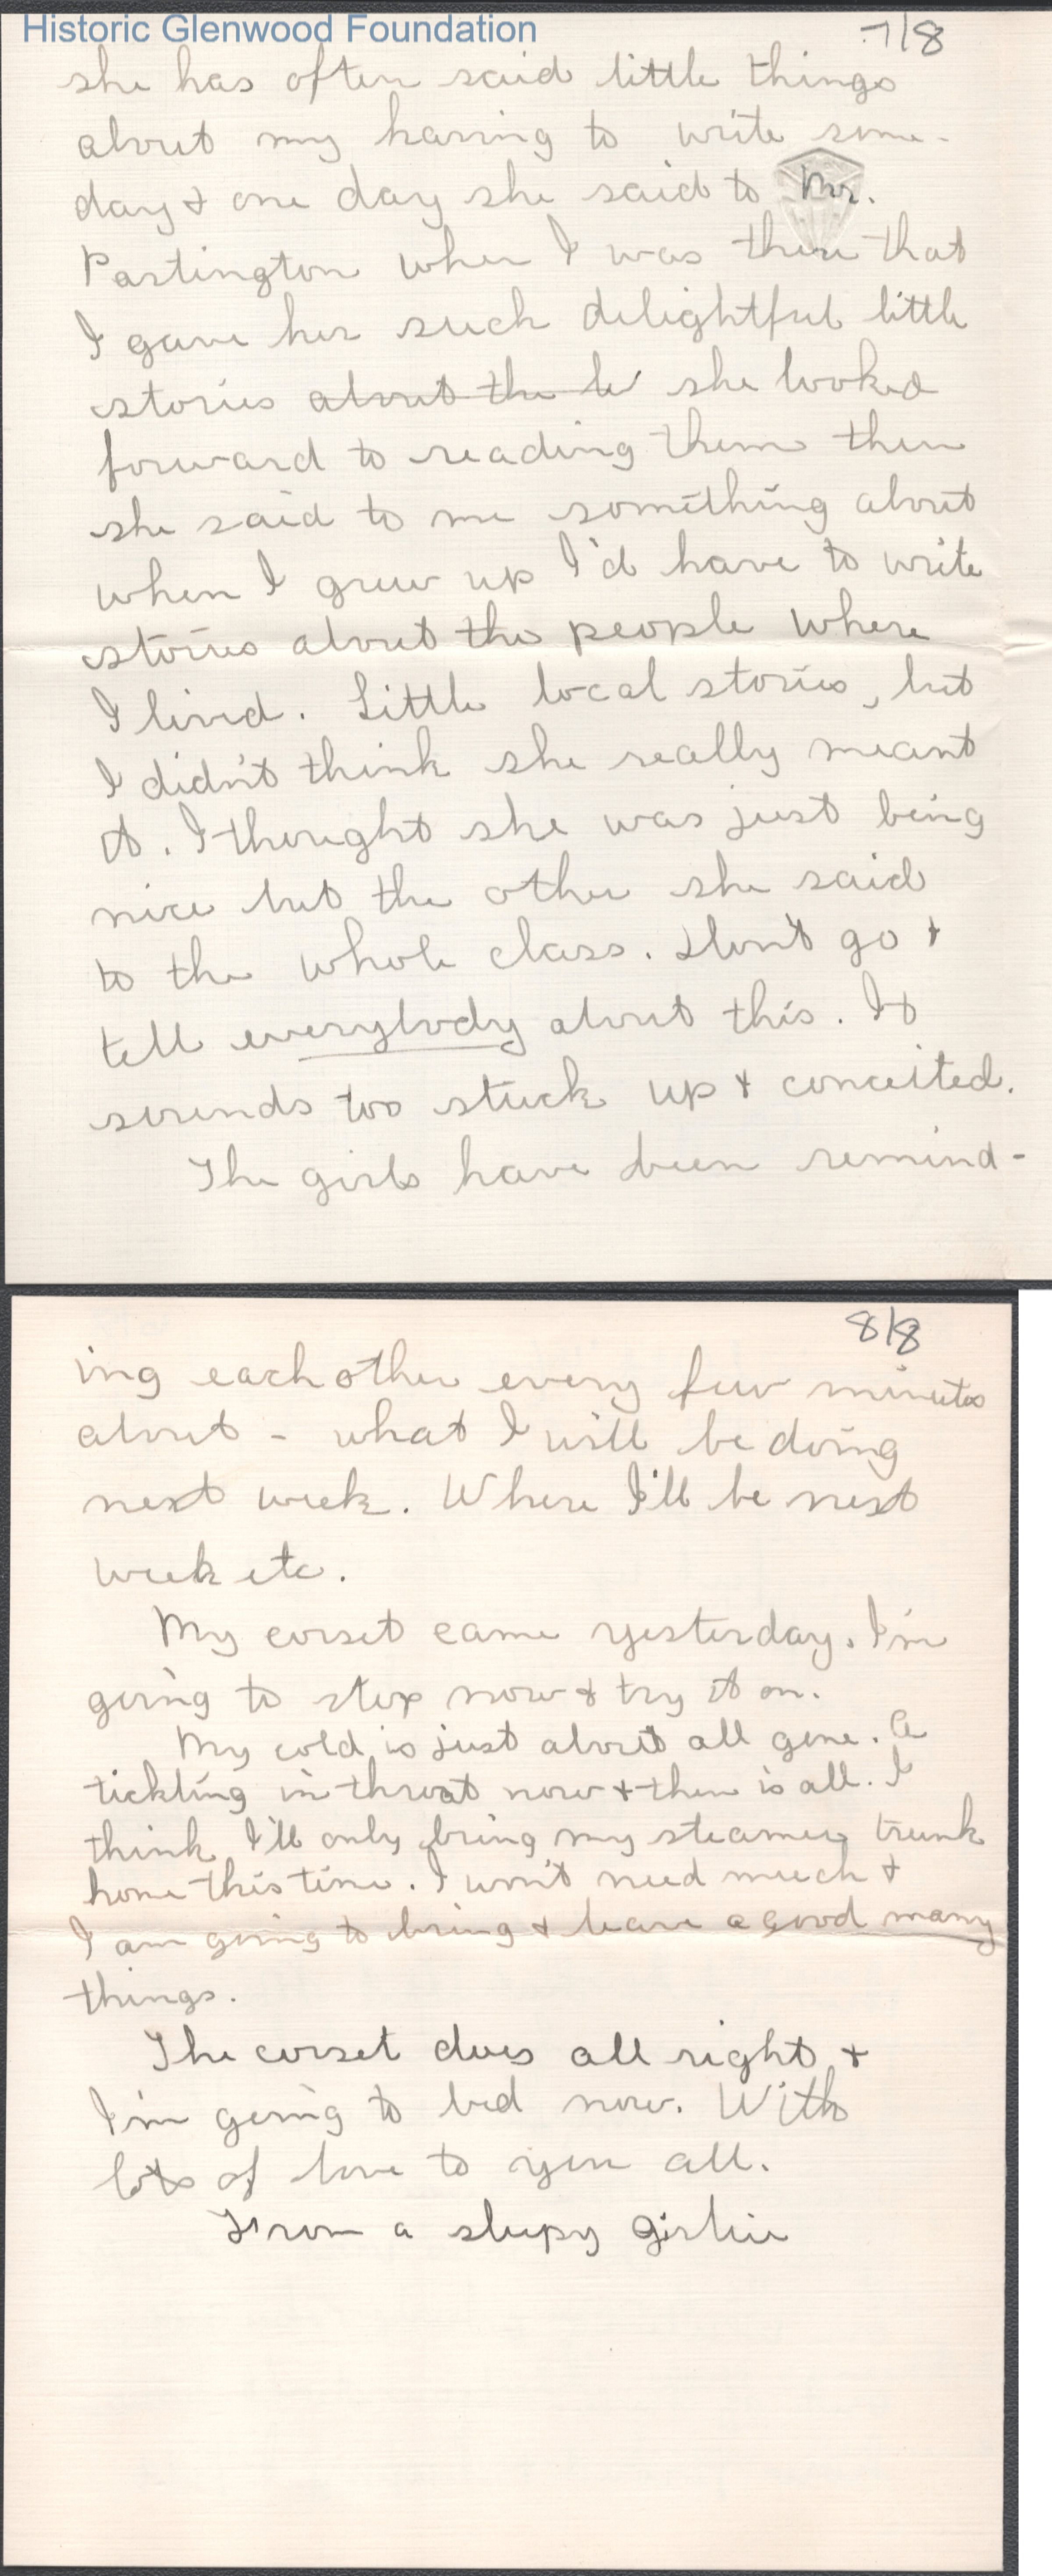 Historic Glenwood Foundation
7/8
she has often said little things
about my having to write some-
day & one day she said to Mr.
Partington when I was there that
I gave her such delightful little
stories about the le she looked
forward to reading them then
she said to me something about
when I grew up I'd have to write
stories about the people where
I lived. Little local stories, but
I didn't think she really meant
it. I thought she was just being
nice but the other she said
to the whole class. Don't go &
tell everybody about this. It
sounds too stuck up & conceited.
The girls have been remind-
8/8
ing each other every few minutes
about - what I will be doing
next week. Where I'll be next
week etc.
My corset came yesterday. I'm
going to stop now & try it on.
My cold is just about all gone. A
tickling in throat now & then is all. I
think I'll only bring my steamer trunk
home this time. I won't need much &
I am going to bring & leave a good many
things.
The corset does all right &
I'm going to bed now. With
lots of love to you all.
From a sleepy girlie